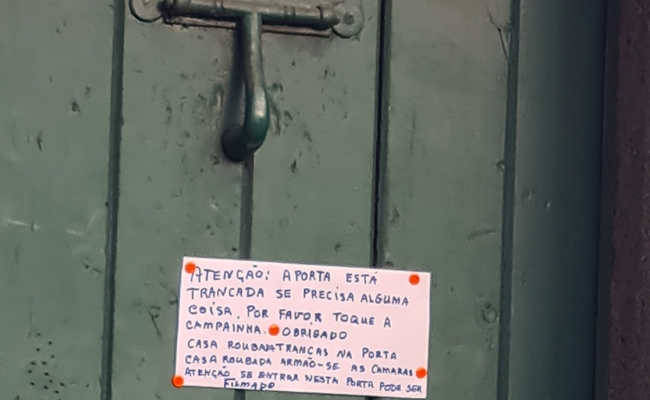 ATENÇÃO: A PORTA ESTÁ
TRANCADA SE PRECISA ALGUMA
COISA. POR FAVOR TOQUE A
CAMPAINHA. OBRIGADO
CASA ROUBADA TRANCAS NA PORTA
CASA ROUBADA ARMÃO-SE AS CAMARAS
ATENÇÃO SE ENTRAR NESTA PORTA PODE SER
FILMADO